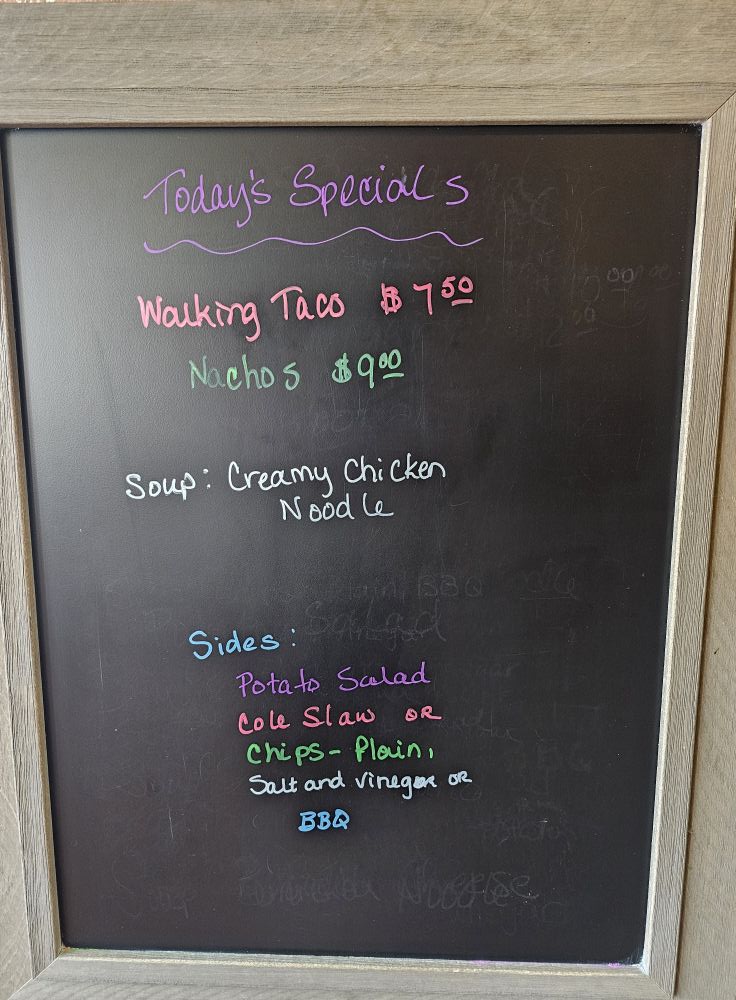 Today's Specials
Walking Taco $7.50
Nachos $9.00
Soup: Creamy Chicken
Noodle
Sides:
Potato Salad
Cole Slaw OR
Chips- Plain,
Salt and Vinegar OR
BBQ